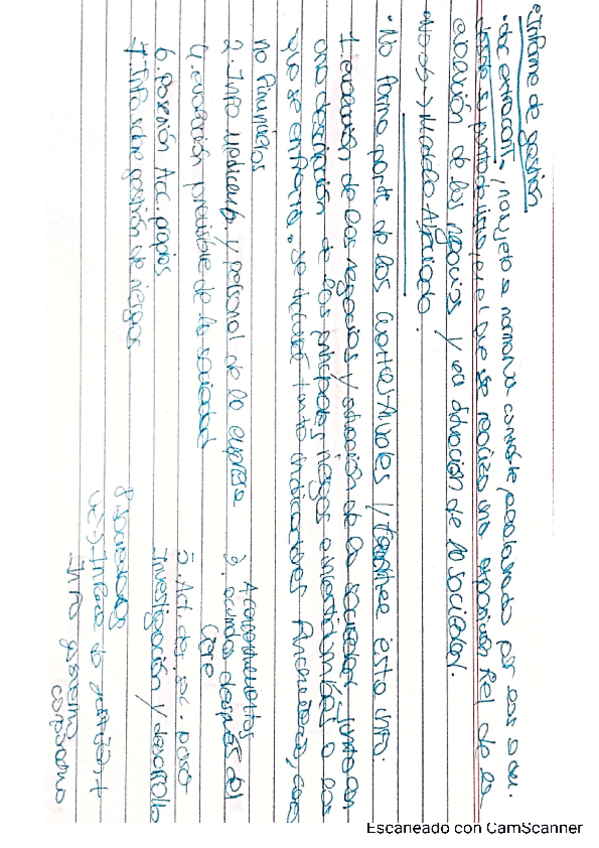 • Informe de gestión
- doc extracont., no sujeto a normativa contable elaborado por
desde su punto de vista, en el que se realiza una exposición fiel de la
evolución de los negocios y la situación de la sociedad.
→ Modelo Abreviado.
• No forma parte de las cuentas Anuales y contiene esta info:
1. evolución de los negocios y situación de la sociedad, junto con
una descripción de los principales riesgos e incertidumbres a los
que se enfrenta, se incluirá tanto indicadores financieros, como
no financieros
2. Info medioamb. y personal de la empresa
3. Acontecimientos
ocurridos después del
cierre
4. evolución previsible de la sociedad
5. Act. de, para
Investigación y desarrollo
6. Posesión Acc. propias
7. Info sobre gestión de riesgos
Informe de gestión +
Info gobierno
corporativo
Escaneado con CamScanner